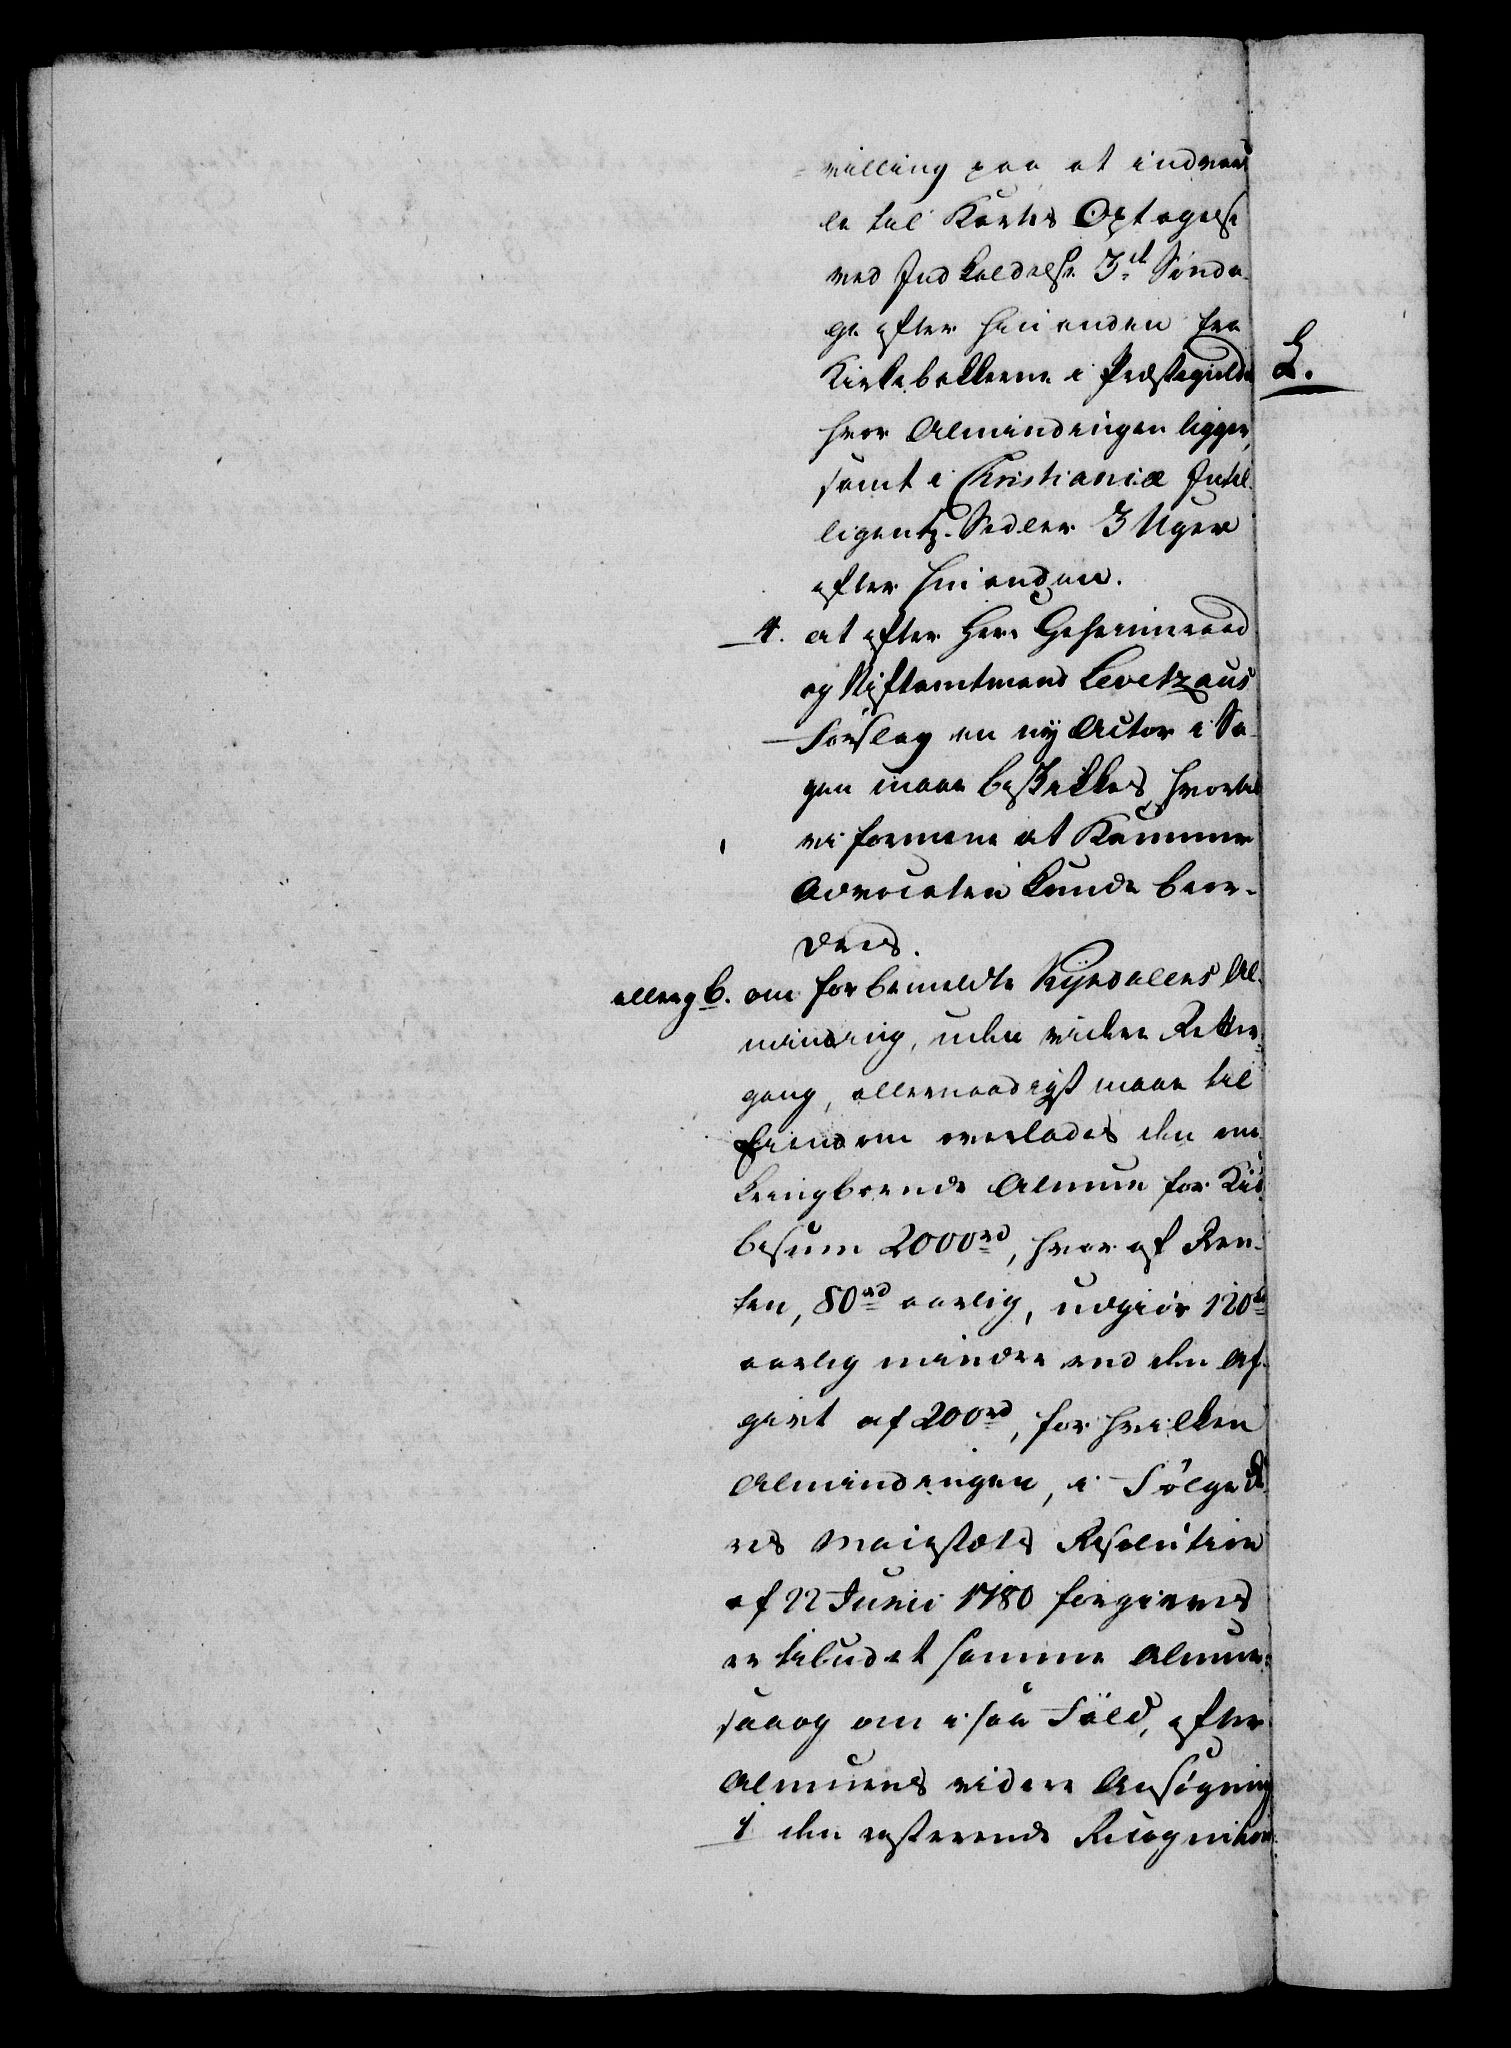 villing paa at indvar¬
le til Karts Optagelse
ved Indkaldelse 3de Sønda¬
ge efter hinanden fra
Kirkebakkerne i Præstegieldet
hvor Almindingen ligger,
samt i Christianiæ Intel¬
ligentz-Sedler 3 Uger
efter hinanden.
4. at efter Herr Geheimeraad
og Stiftamtmand Levetzaus
Forslag en ny Actor i Sa¬
gen maae beskikkes, hvortil
vi formene at Kammer
Advocaten kunde beor¬
dres.
L.
eller b. om forbemeldte Rÿedalens Al¬
minding, uden videre Retter¬
gang, allernaadigst maae til
Eiendom overlades den om
kringboende Almue for Kiö¬
besum 2000rd, hvor af Ren¬
ten, 80rd aarlig, udgiør 120rd
aarlig mindre end den Af¬
givt af 200rd, for hvilken
Almindingen, i Følge De¬
res Maiestæts Resolution
af 22 Junii 1780 forgieves
er tilbudet samme Almue:
saaog om i saa Fald, efter
Almuens videre Ansøgning
1 den resterende Recognition